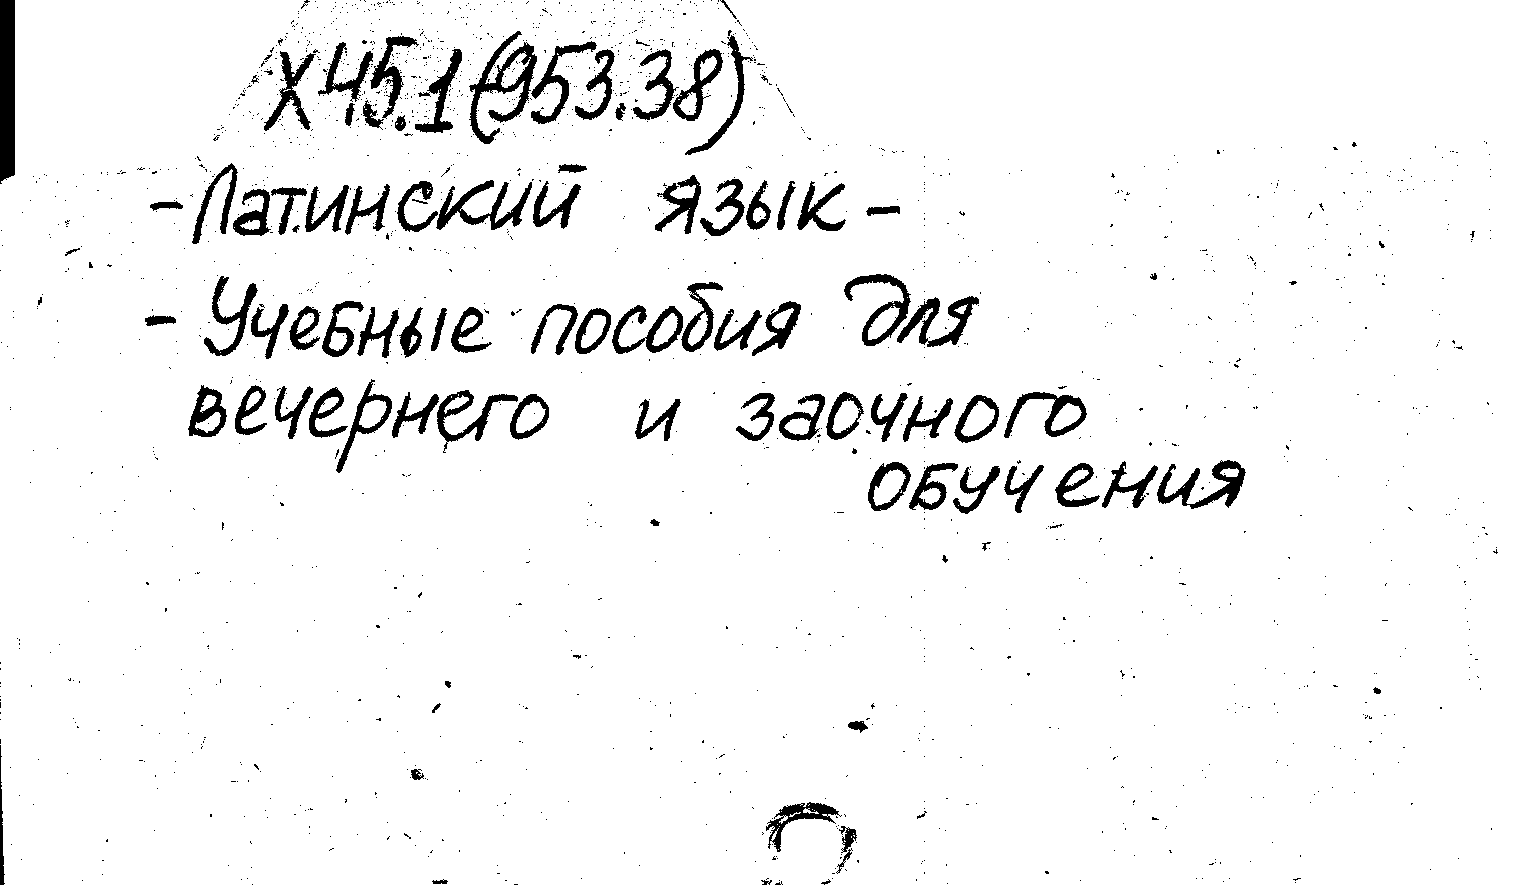 Х45.1(953.38)
-Латинский язык-
- Учебные пособия для
вечернего и заочного
обучения